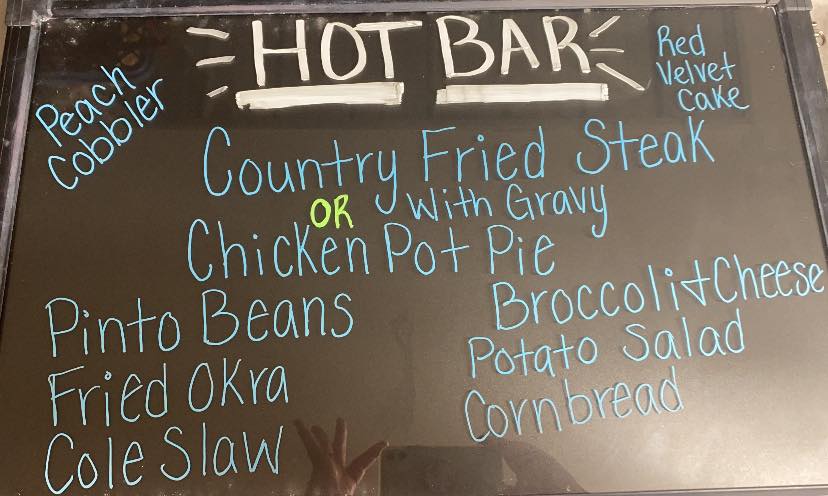 HOT BAR
Peach
Cobbler
Red
Velvet
Cake
Country Fried Steak
With Gravy
OR
Chicken Pot Pie
Pinto Beans
Fried Okra
Cole Slaw
Broccoli + Cheese
Potato Salad
Cornbread